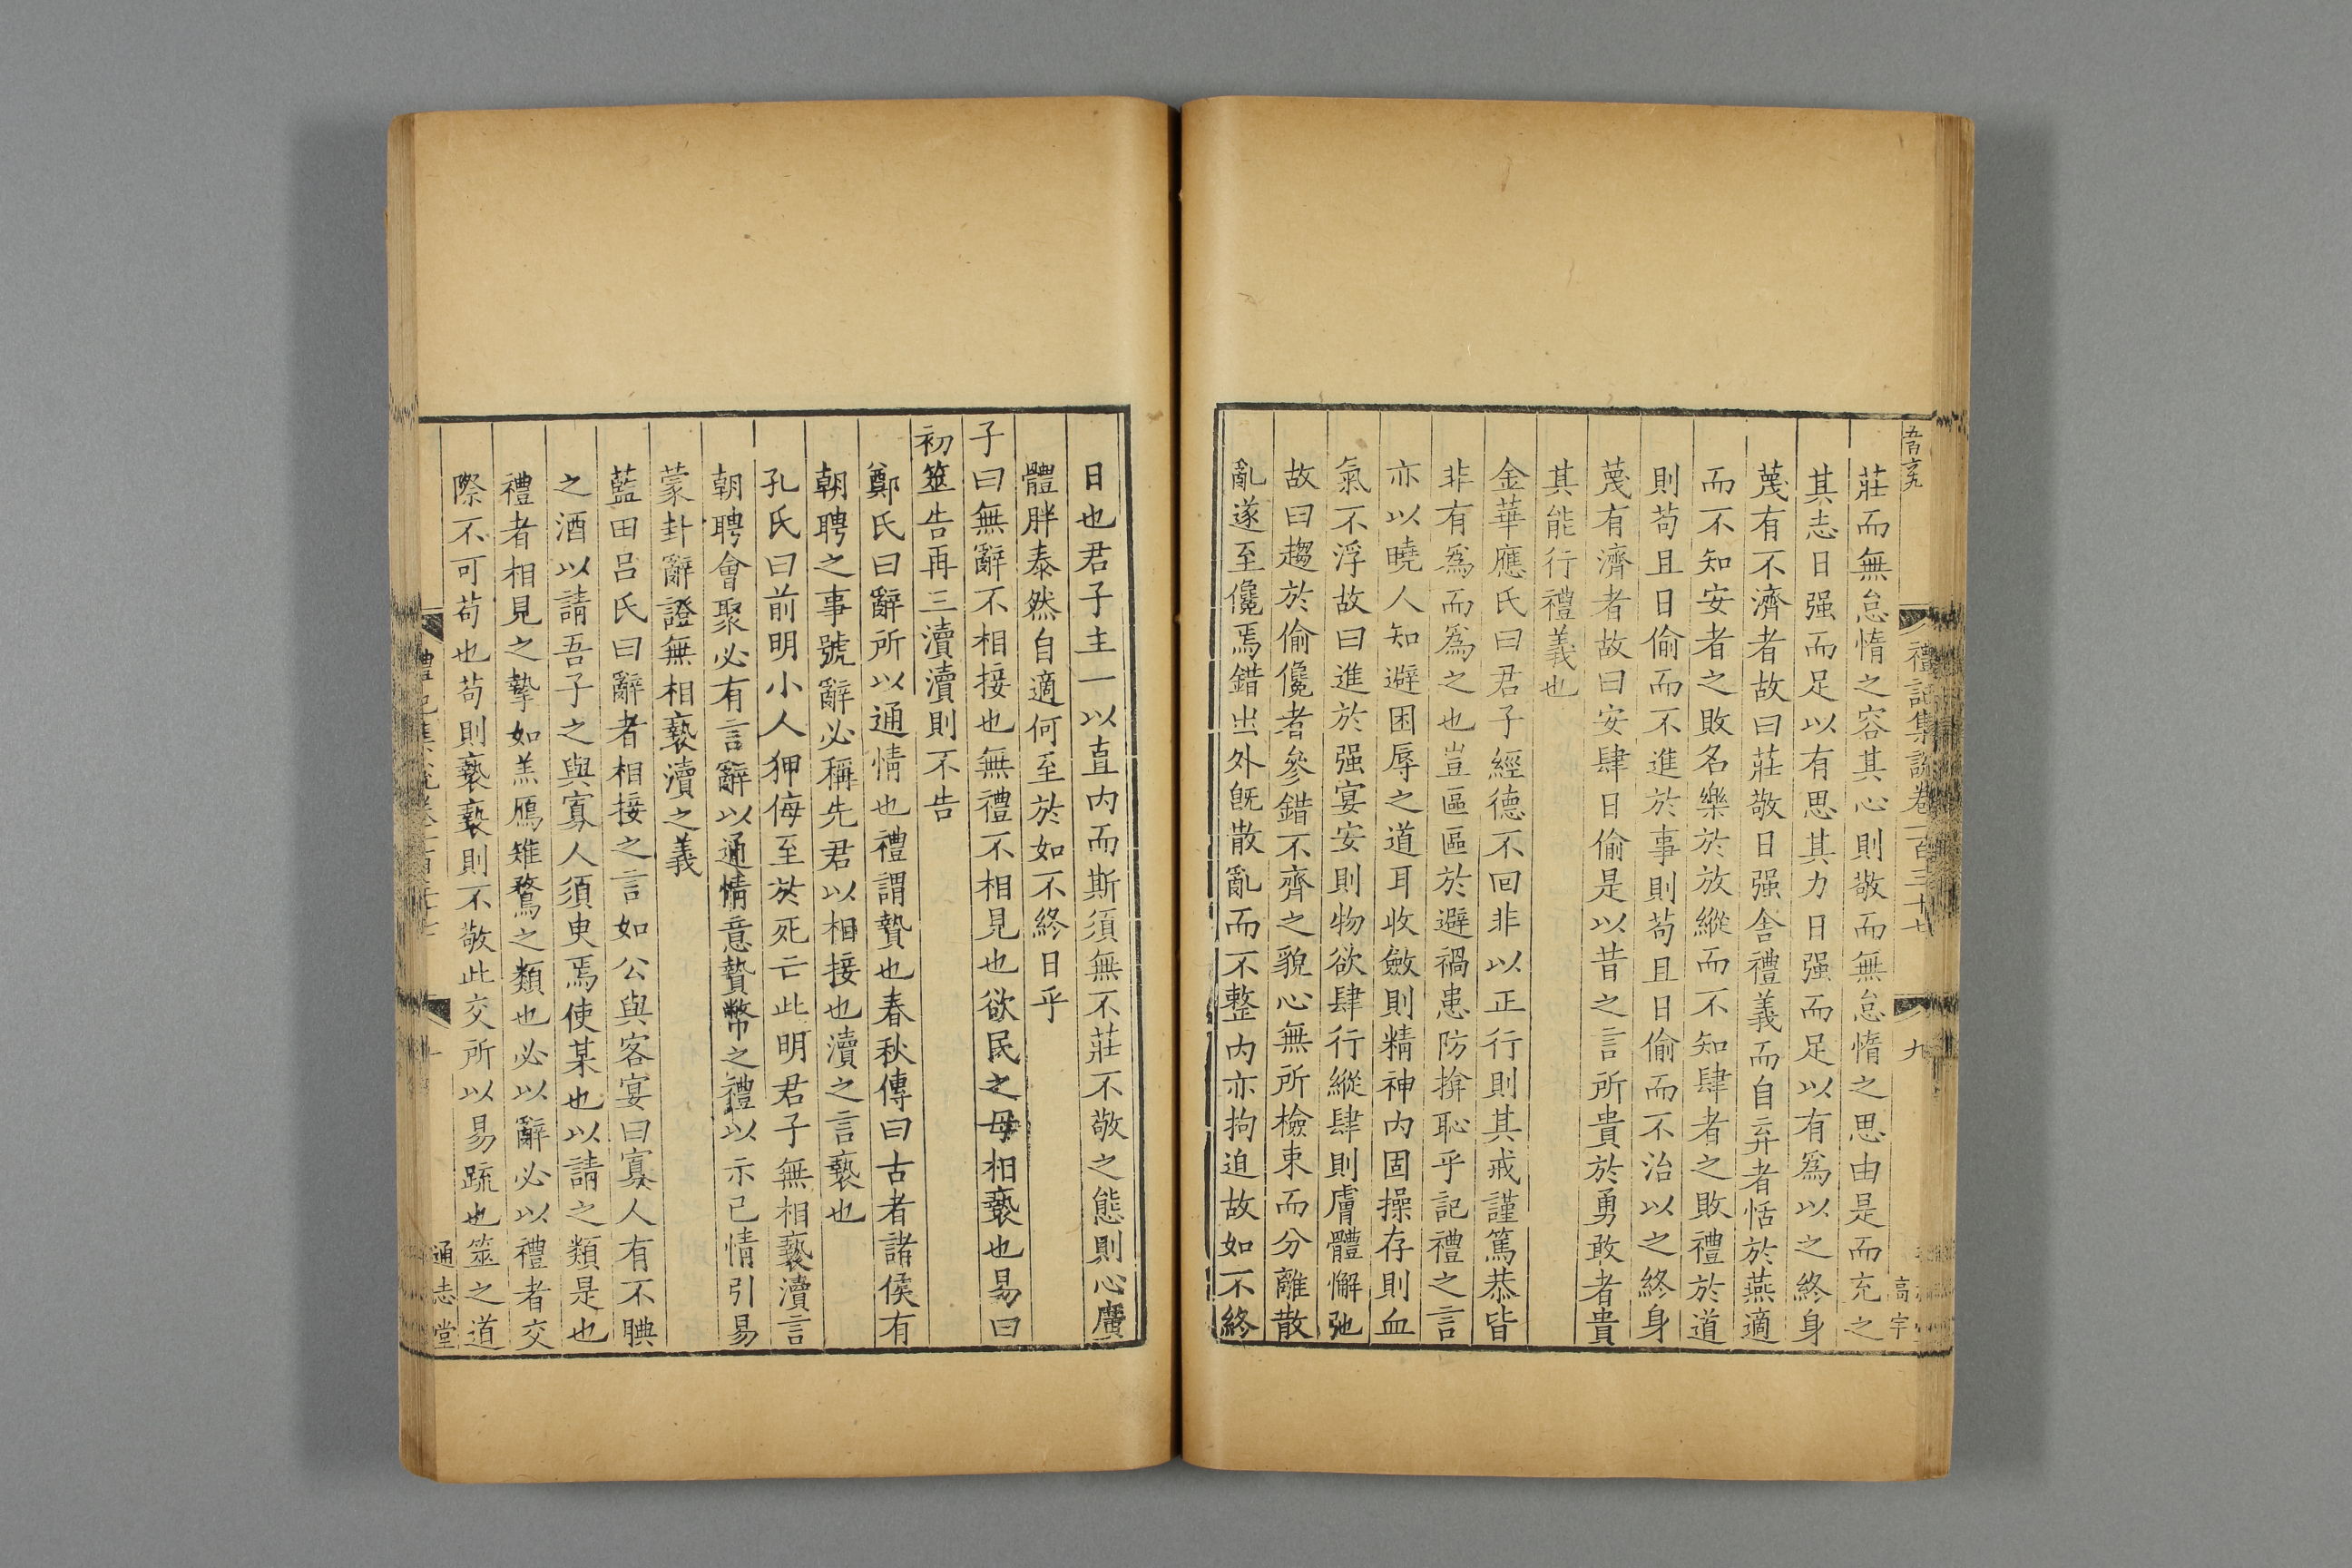 禮記集說卷一百三十七
九
高宇
莊而無怠惰之容其心則敬而無怠惰之思由是而充之
其志日强而足以有思其力日强而足以有爲以之終身
蔑有不濟者故曰莊敬日强舍禮義而自弃者恬於燕適
而不知安者之敗名樂於放縱而不知肆者之敗禮於道
則苟且日偷而不進於事則苟且日偷而不治以之終身
蔑有濟者故曰安肆日偷是以昔之言所貴於勇敢者貴
其能行禮義也
金華應氏曰君子經德不回非以正行則其戒謹篤恭皆
非有爲而爲之也豈區區於避禍患防揜恥乎記禮之言
亦以曉人知避困辱之道耳收斂則精神内固操存則血
氣不浮故曰進於强宴安則物欲肆行縱肆則膚體懈弛
故曰趨於偷儳者參錯不齊之貌心無所檢束而分離散
亂遂至儳焉錯出外旣散亂而不整内亦拘迫故如不終
日也君子主一以直内而斯須無不莊不敬之態則心廣
體胖泰然自適何至於如不終日乎
子曰無辭不相接也無禮不相見也欲民之毋相褻也易曰
初筮告再三瀆瀆則不告
鄭氏曰辭所以通情也禮謂贄也春秋傳曰古者諸侯有
朝聘之事號辭必稱先君以相接也瀆之言褻也
孔氏曰前明小人狎侮至於死亡此明君子無相褻瀆言
朝聘會聚必有言辭以通情意贄幣之禮以示已情引易
蒙卦辭證無相褻瀆之義
藍田吕氏曰辭者相接之言如公與客宴曰寡人有不腆
之酒以請吾子之與寡人須臾焉使某也以請之類是也
禮者相見之摯如羔鴈雉鶩之類也必以辭必以禮者交
際不可苟也苟則褻褻則不敬此交所以易疏也筮之道
通志堂